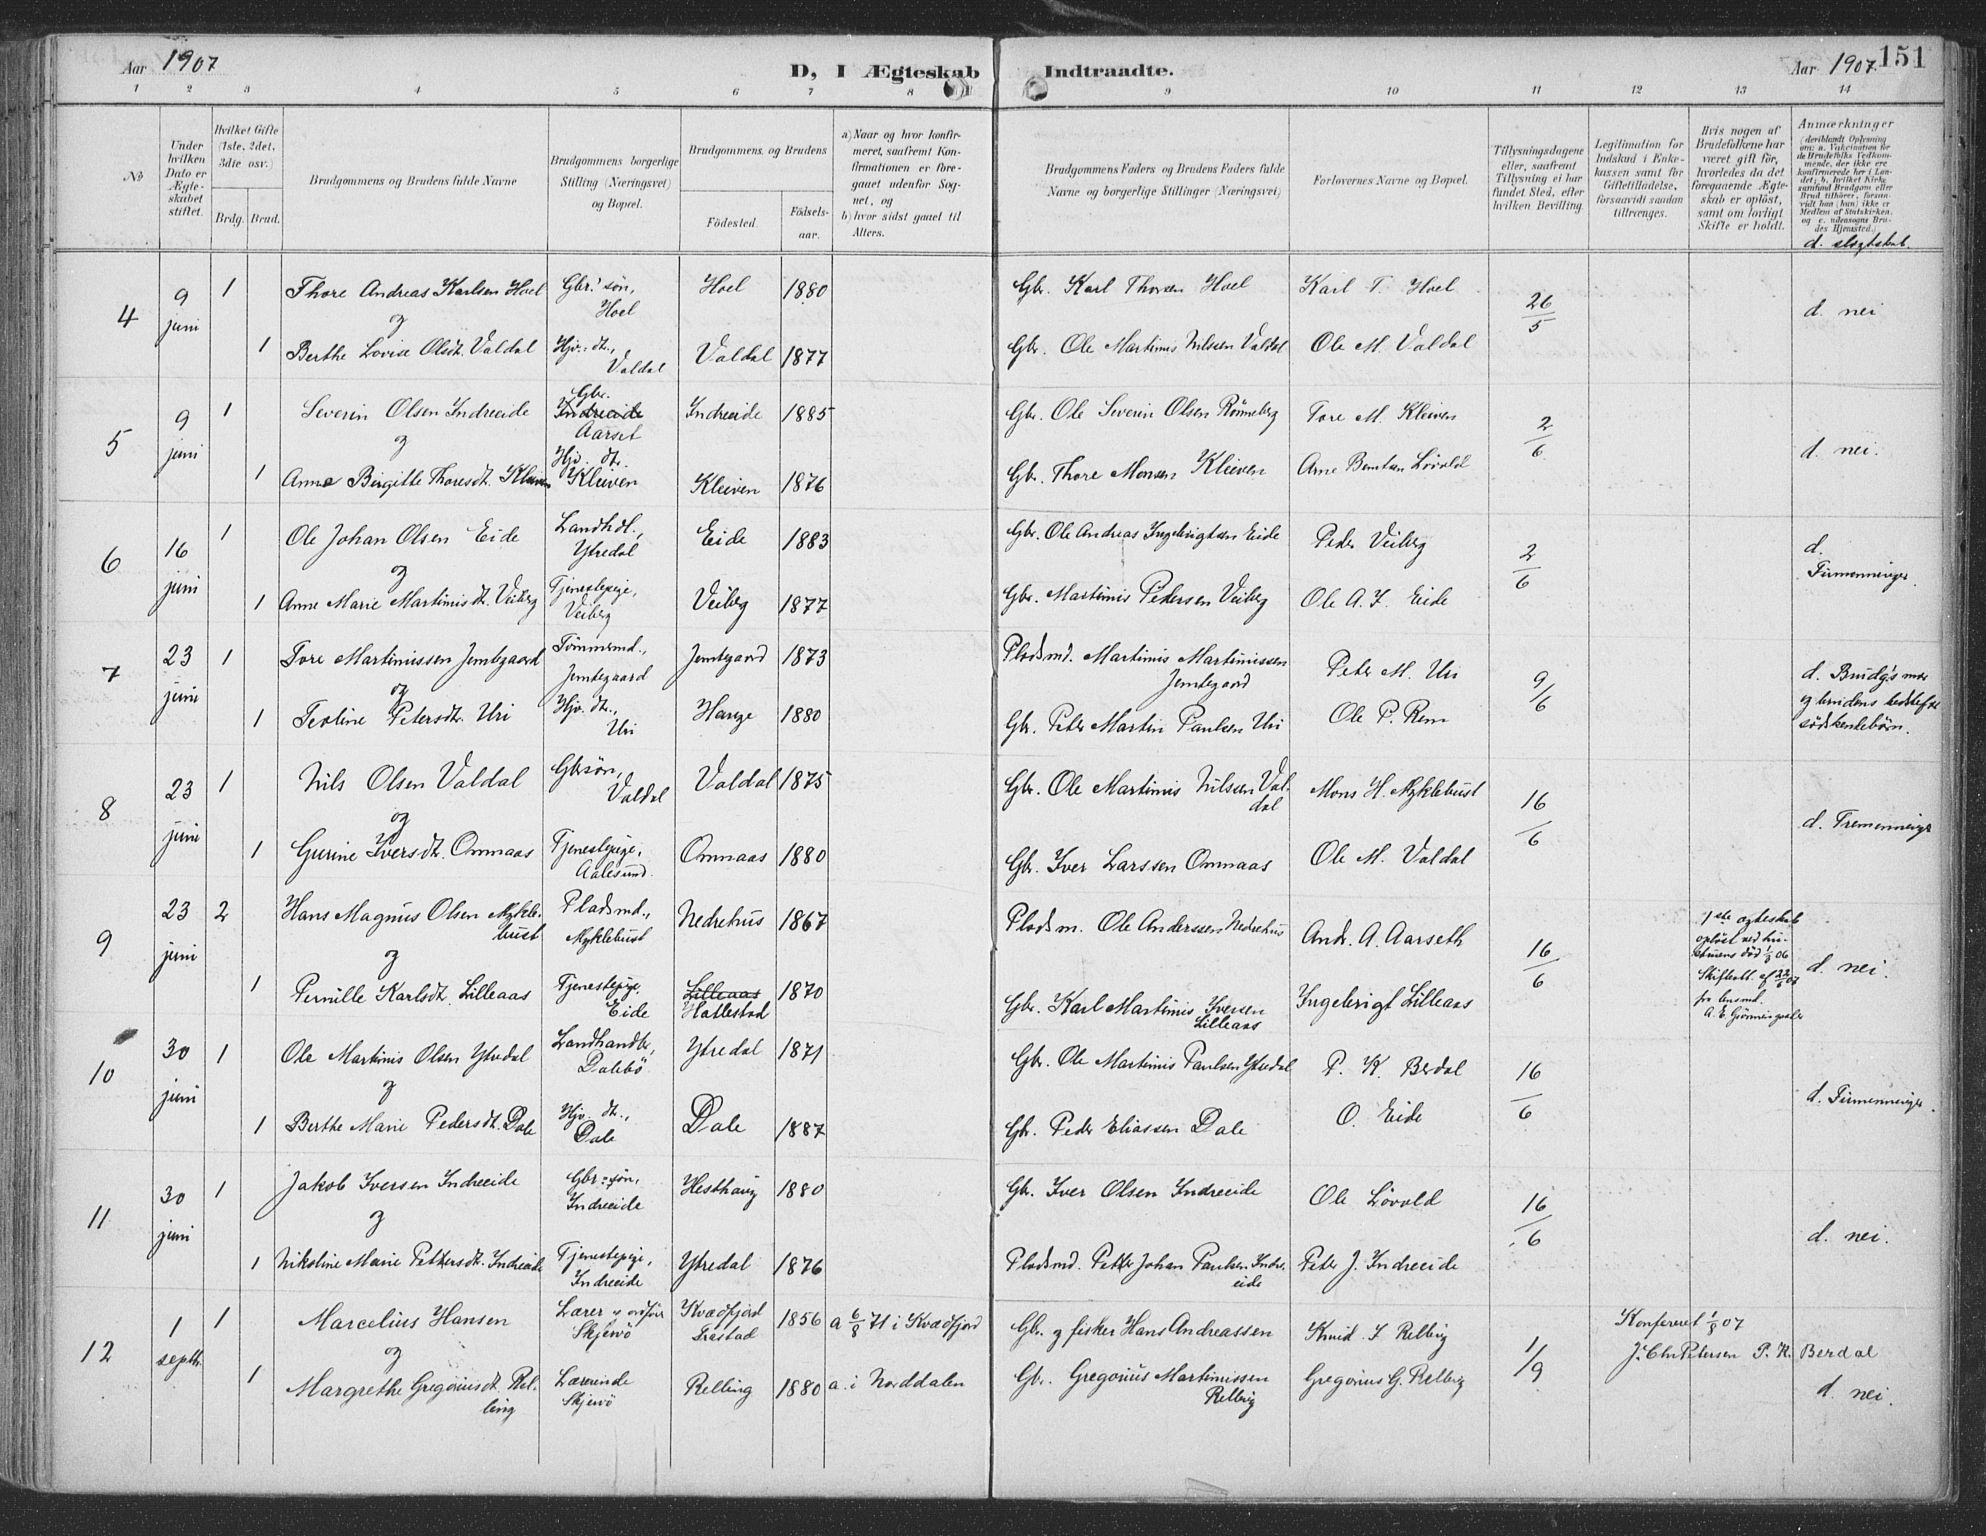 Aar 1907
D, I Ægteskab Indtraadte.
Aar 1907
151
1 2 3 4 5 6 7 8 9 10 11 12 13 14
No
Under hvilken Dato er Ægteskabet stiftet.
Hvilket Gifte (1ste, 2det, 3die osv.)
Brdg. Brud.
Brudgommens og Brudens fulde Navne
Brudgommens borgerlige Stilling (Næringsvei) og Bopæl.
Brudgommens og Brudens
Födested. Födselsaar.
a) Naar og hvor konfirmeret, saafremt Konfirmationen er foregaaet udenfor Sognet, og
b) hvor sidst gaaet til Alters.
Brudgommens Faders og Brudens Faders fulde Navne og borgerlige Stillinger (Næringsvei)
Forlovernes Navne og Bopæl.
Tillysningsdagene eller, saafremt Tillysning ei har fundet Sted, efter hvilken Bevilling.
Legitimation for Indskud i Enkekassen samt for Giftetilladelse, forsaavidt saadan tiltrænges.
Hvis nogen af Brudefolkene har været gift før, hvorledes da det foregaaende Ægteskab er oplöst, samt om lovligt Skifte er holdt.
Anmærkninger
(deriblandt Oplysning om: a. Vakcination for de Brudefolks Vedkommende, der ikke ere konfirmerede her i Landet; b. hvilket Kirkesamfund Brudgom eller Brud tilhörer, forsaavidt han (hun) ikke er Medlem af Statskirken, og c. udensogns Brudes Hjemsted.)
d. slegtskab.
4 9 juni 1 Thore Andreas Karlsen Hoel Gbr.' søn, Hoel Hoel 1880 Gbr. Karl Thoresen Hoel Karl T. Hoel 26/5 d. nei
og
1 Berthe Lovise Olsdt. Valdal Hjv. dt., Valdal Valdal 1877 Gbr. Ole Martinus Nilssen Valdal Ole M. Valdal
5 9 juni 1 Severin Olsen Indreeide Gbr. Indreeide Aarset Indreeide 1885 Gbr. Ole Severin Olsen Rönneberg Tore M. Kleiven 2/6 d. nei.
og
1 Anne Birgitte Thoresdt. Kleiven Hjv. dt. Kleiven Kleiven 1876 Gbr. Thore Monsen Kleiven Arne Berntsen Lövold
6 16 juni 1 Ole Johan Olsen Eide Landhdl., Ytredal Eide 1883 Gbr. Ole Andreas Ingebrigtsen Eide Peder Veiberg 2/6 d. Firmenninger.
og
1 Anne Marie Martinusdt. Veiberg Tjenestepige, Veiberg Veiberg 1877 Gbr. Martinus Pedersen Veiberg Ole A. I. Eide
7 23 juni 1 Tore Martinussen Jemtegaard Tömmermd., Jemtegaard Jemtegaard 1873 Pladsmd. Martinus Martinussen Jemtegaard Peter M. Uri 9/6 d. Brudg's mor og brudens bedstefar södskendebörn.
og
1 Teoline Petersdtr. Uri Hjv. dt., Uri Hauge 1880 Gbr. Peter Martin Paulsen Uri Ole P. Rem
8 23 juni 1 Nils Olsen Valdal Gbrsön, Valdal Valdal 1875 Gbr. Ole Martinus Nilssen Valdal Mons H. Myklebust 16/6 d. Tremenninger
og
1 Gurine Iversdt. Omnaas Tjenestepige, Aalesund. Omnaas 1880 Gbr. Iver Larssen Omnaas Ole M. Valdal
9 23 juni 2 Hans Magnus Olsen Myklebust Pladsmd., Myklebust Nedrehus 1867 Pladsm. Ole Anderssen Nedrehus Andr. A. Aarseth 16/6 1ste ægteskab oplöst ved hustruens död 06 Skifteatt. af 22/6 07 fra lensmd. d. nei.
og
1 Pernille Karlsdt. Lilleaas Tjenestepige Eide Lilleaas Hallestad 1870 Gbr. Karl Martinus Iversen Lilleaas Ingebrigt Lilleaas
10 30 juni 1 Ole Martinus Olsen Ytredal Landhandler, Dalebö Ytredal 1871 Gbr. Ole Martinus Paulsen Ytredal P. K. Berdal 16/6 d. Firmenninger.
og
1 Berthe Marie Pedersdt. Dale Hjv. dt., Dale Dale 1887 Gbr. Peder Eliassen Dale O. Eide
11 30 juni 1 Jakob Iversen Indreeide Gbr.-søn, Indreeide Hesthaug 1880 Gbr. Iver Olsen Indreeide Ole Lövold 16/6 d. nei.
og
1 Nikoline Marie Pettersdt. Indreeide Tjenestepige, Indreeide Ytredal 1876 Pladsmd. Petter Johan Paulsen Indreeide Peter J. Indreeide
12 1 septbr. 1 Marcelius Hansen Lærer og ordförer Skjervö Kvædfjord 1856 a 6/8 71 i Kvædfjord Gbr. og fisker Hans Andreassen Knud I Relling 1/9 Konfereret 1/8 07 J. Chr Petersen P. K. Berdal
og
1 Margrethe Gregoriusdt. Relling Lærerinde Skjervö Relling 1880 a. i Norddalen Gbr. Gregorius Martinussen Relling Gregorius G. Relling d. nei.